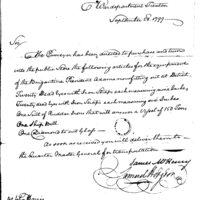 War department Trenton
September 28. 1799
Sir
The Purveyor has been directed to purchase and
into the public Store the following articles for the equipment
of the Brigantine President Adams now fitting out at Detroit
Twenty Dead Eyes with Iron Straps each measuring nine Inches,
Twenty dead Eyes with Iron Straps each measuring six Inches
One Sett of Rudder Irons that will answer a Vessel of 150 Tons
One Ship Bell
One Glass
As soon as received you will deliver them to
the Quarter Master General for transportation
James McHenry
Samuel Hodgdon